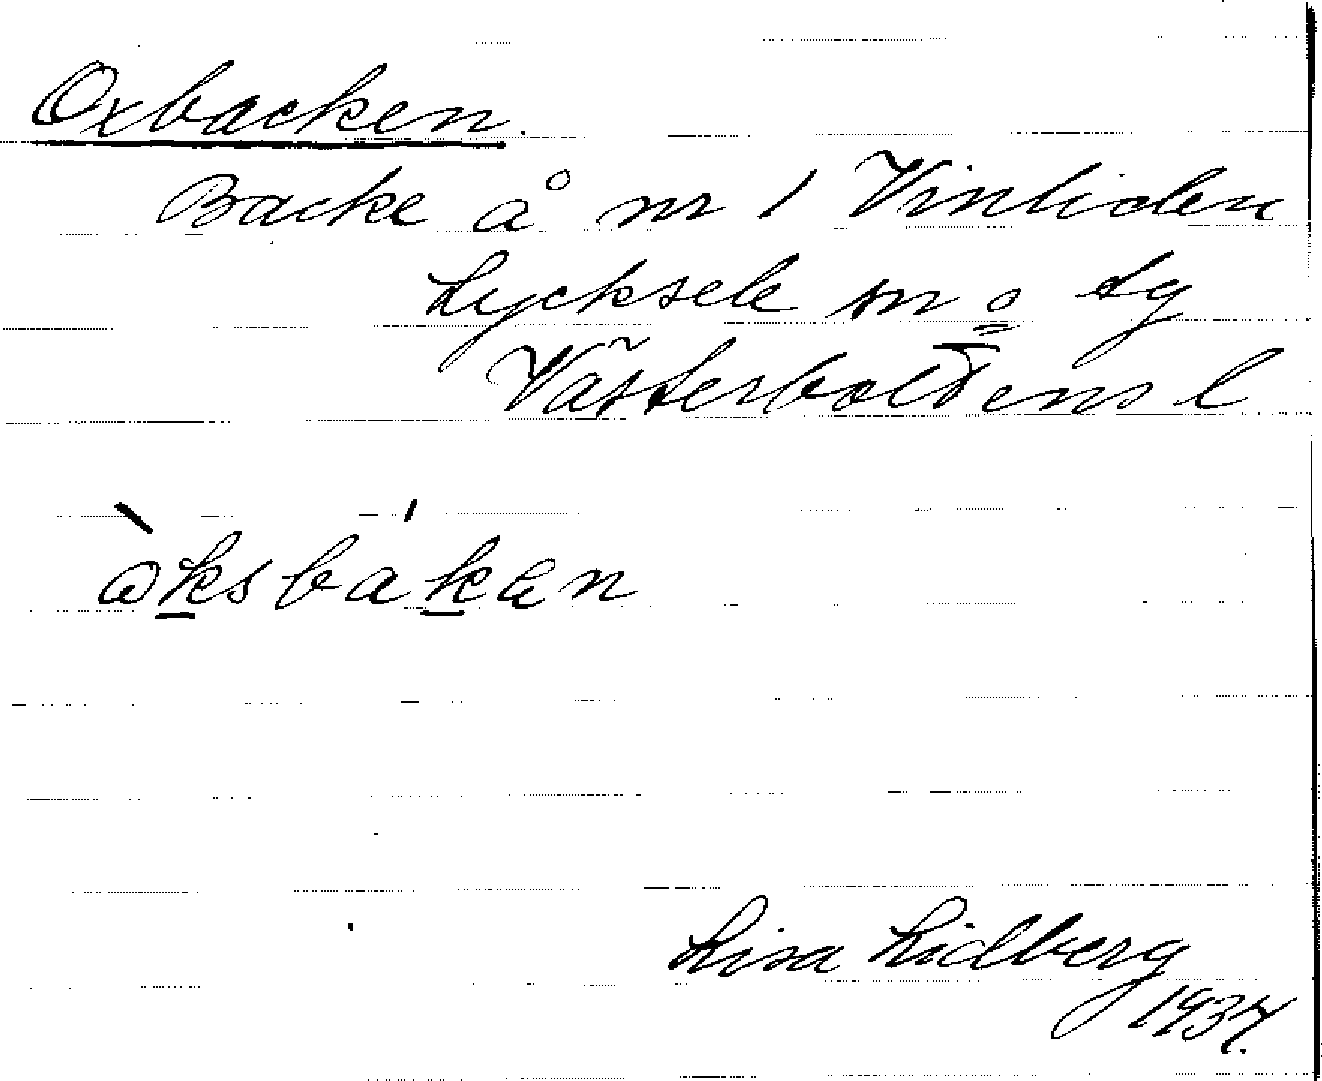 Oxbacken.
Backe å nr 1 Vinliden
Lycksele sn o tg
Västerbottens l
òksbákan
Lisa Lidberg
1937.